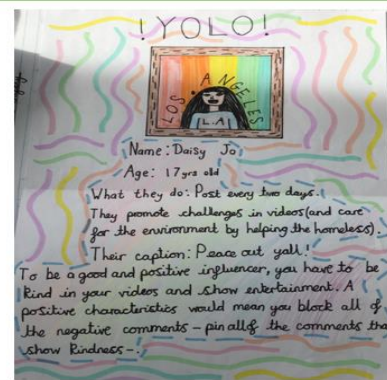 !YOLO!
LOS ANGELES
L.A
Name: Daisy Jo
Age: 17yrs old
What they do: Post every two days.
They promote challenges in videos (and care
for the environment by helping the homeless).
Their caption: Peace out yall!
To be a good and positive influencer, you have to be
kind in your videos and show entertainment. A
positive characteristics would mean you block all of
the negative comments - pin all of the comments tha
show kindness-.